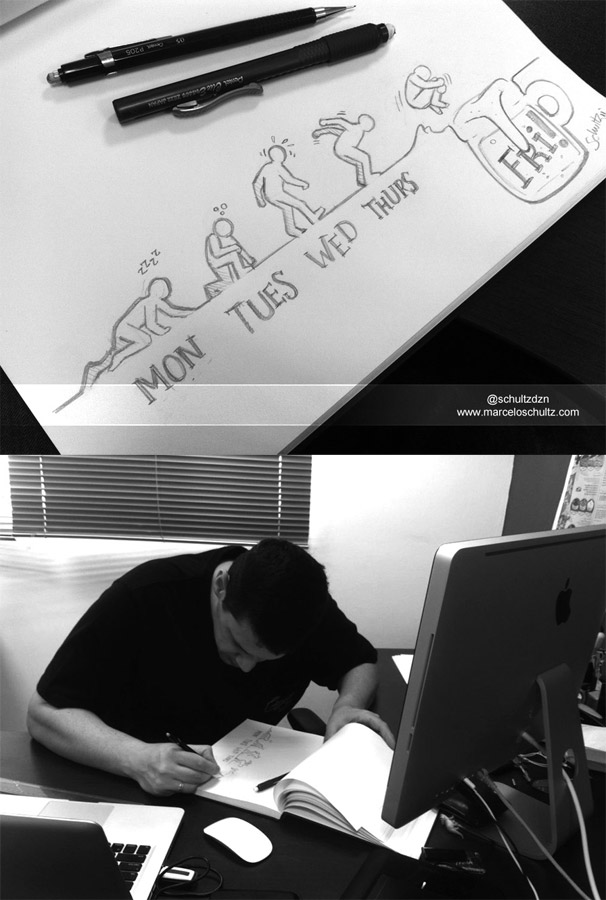 Pentel P205 0.5
zzzz
MON TUES WED THURS FRI!
Schultz
@schultzdzn
www.marceloschultz.com